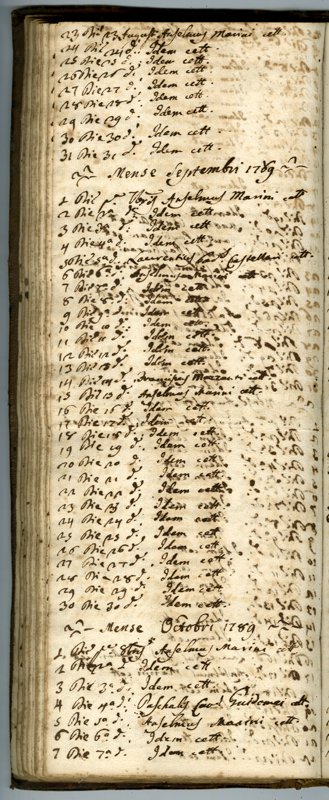 23 Die 23 Augusti Anselmus Marini cett.
24 Die 24 d.ᵃ Idem cett.
25 Die 25 d.ᵃ Idem cett.
26 Die 26 d.ᵃ Idem cett.
27 Die 27 d.ᵃ Idem cett.
28 Die 28 d.ᵃ Idem cett.
29 Die 29 d.ᵃ Idem cett.
30 Die 30 d.ᵃ Idem cett.
31 Die 31 d.ᵃ Idem cett.
Mense Septembri 1789
1 Die pᵃ 7bris Anselmus Marini cett.
2 Die 2ᵃ d.ᵃ Idem cett.
3 Die 3ᵃ d.ᵃ Idem cett.
4 Die 4ᵃ d.ᵃ Idem cett.
5 Die 5ᵃ d.ᵃ Castellani cett.
6 Die 6ᵃ d.ᵃ Anselmus Marini cett.
7 Die 7ᵃ d.ᵃ Idem cett.
8 Die 8ᵃ d.ᵃ Idem cett.
9 Die 9ᵃ d.ᵃ Idem cett.
10 Die 10 d.ᵃ Idem cett.
11 Die 11 d.ᵃ Idem cett.
12 Die 12 d.ᵃ Idem cett.
13 Die 13 d.ᵃ Idem cett.
14 Die 14 d.ᵃ cett.
15 Die 15 d.ᵃ Anselmus Marini cett.
16 Die 16 d.ᵃ Idem cett.
17 Die 17 d.ᵃ Idem cett.
18 Die 18 d.ᵃ Idem cett.
19 Die 19 d.ᵃ Idem cett.
20 Die 20 d.ᵃ Idem cett.
21 Die 21 d.ᵃ Idem cett.
22 Die 22 d.ᵃ Idem cett.
23 Die 23 d.ᵃ Idem cett.
24 Die 24 d.ᵃ Idem cett.
25 Die 25 d.ᵃ Idem cett.
26 Die 26 d.ᵃ Idem cett.
27 Die 27 d.ᵃ Idem cett.
28 Die 28 d.ᵃ Idem cett.
29 Die 29 d.ᵃ Idem cett.
30 Die 30 d.ᵃ Idem cett.
Mense Octobri 1789
1 Die pᵃ 8bris Anselmus Marini cett.
2 Die 2ᵃ d.ᵃ Idem cett.
3 Die 3ᵃ d.ᵃ Idem cett.
4 Die 4ᵃ d.ᵃ Paschalis cett.
5 Die 5ᵃ d.ᵃ Anselmus Marini cett.
6 Die 6ᵃ d.ᵃ Idem cett.
7 Die 7ᵃ d.ᵃ Idem cett.